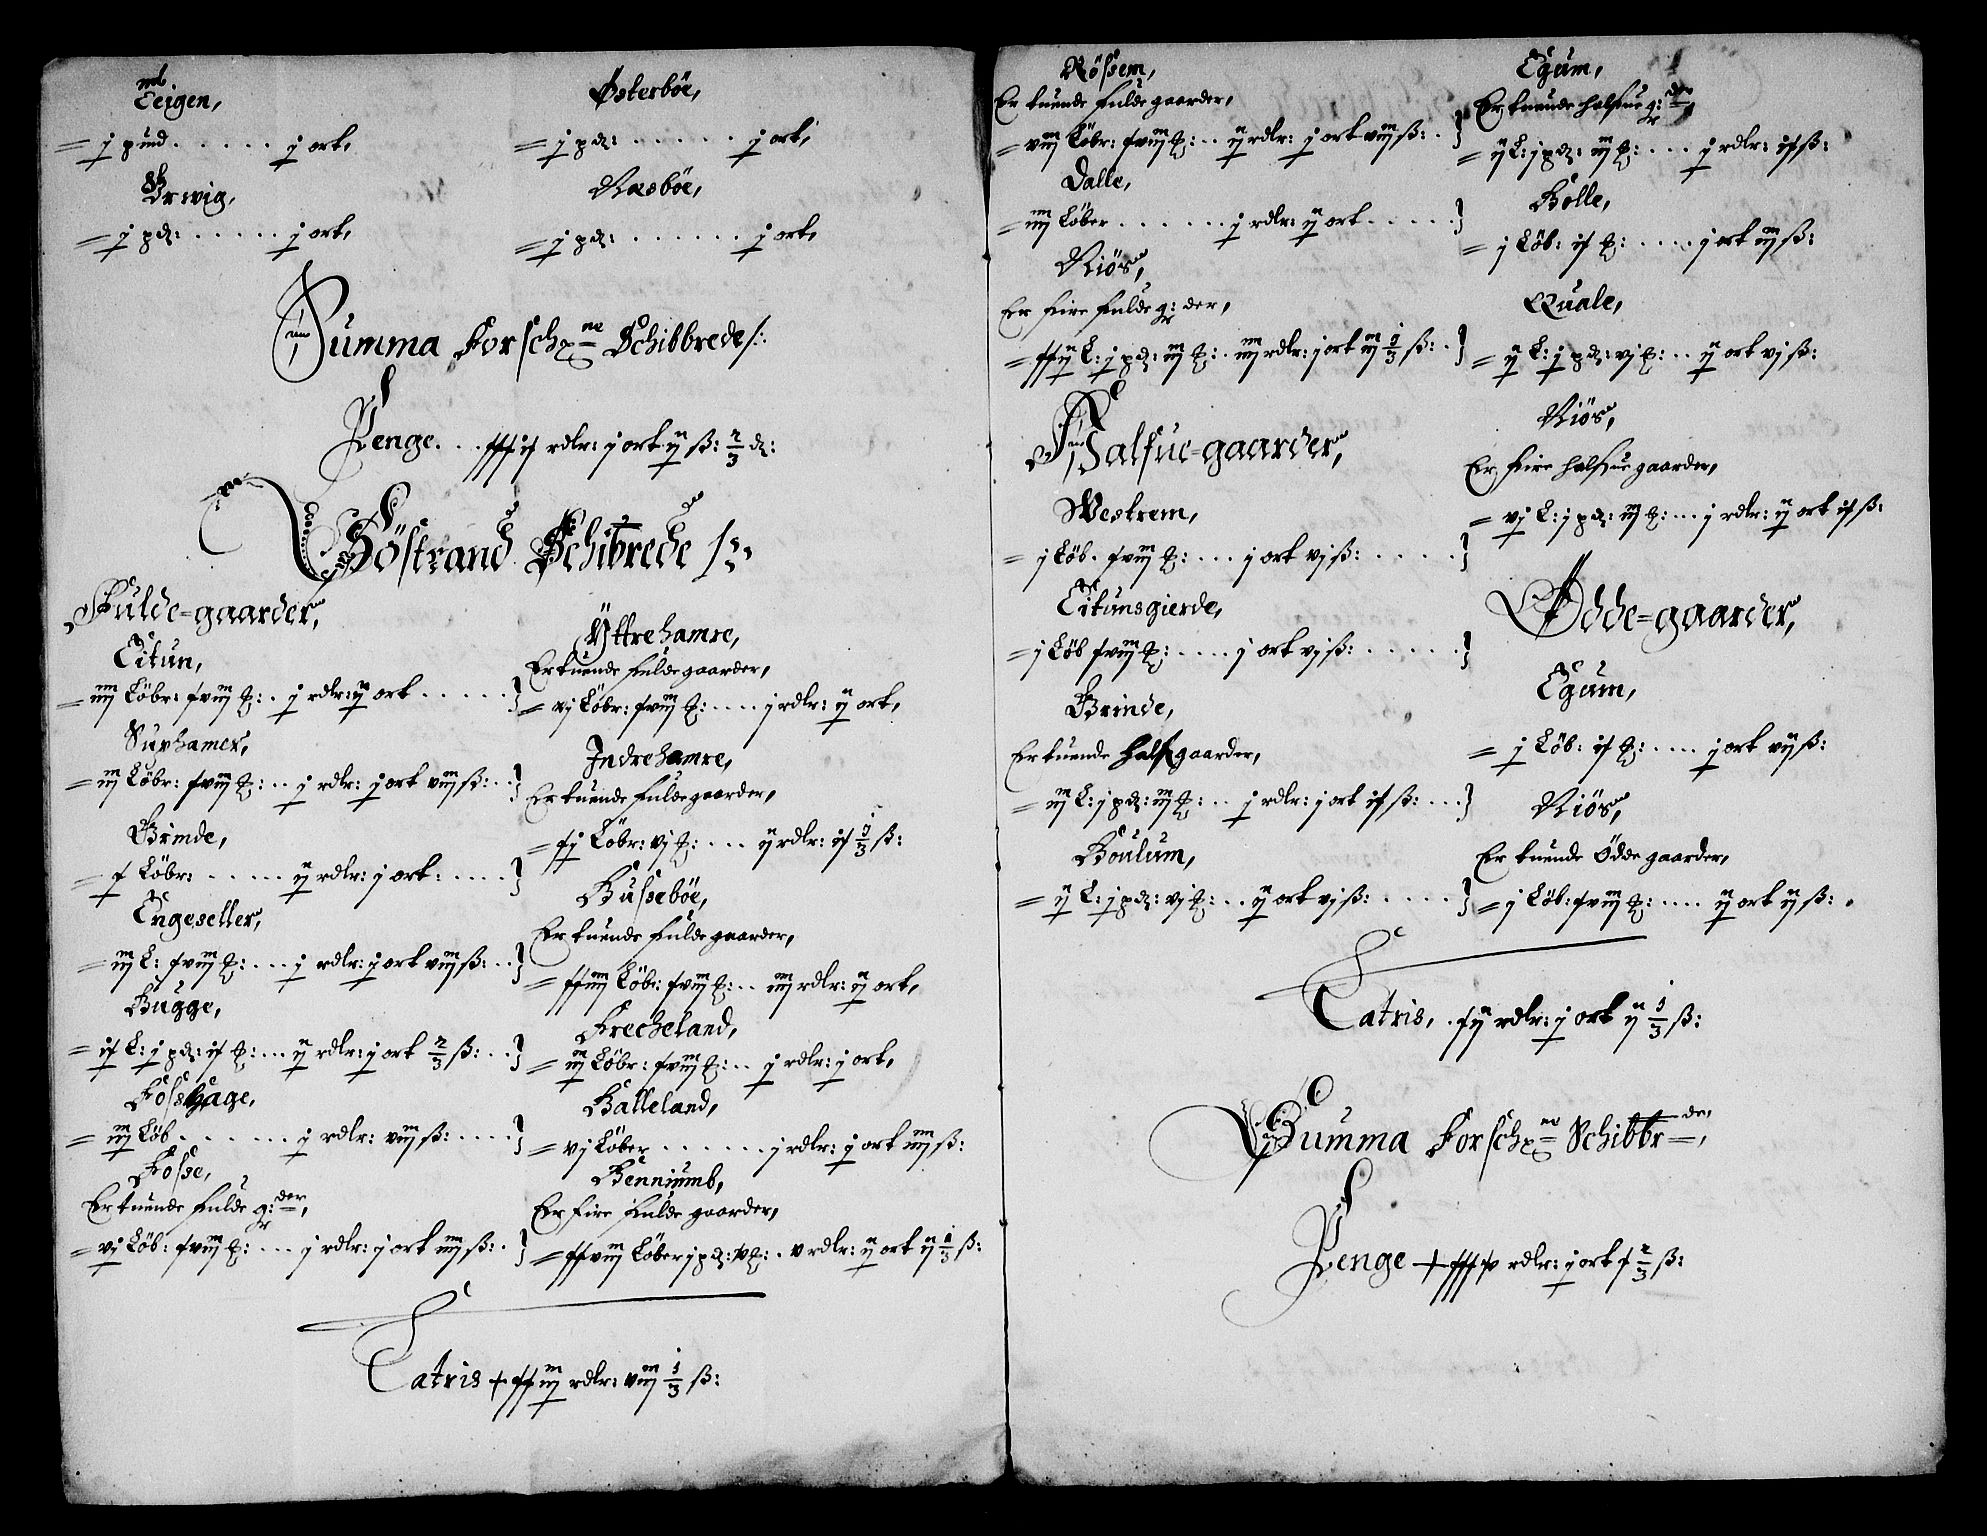 Eeigen,
= j pund . . . . . j ort,
Ørwig,
= j pd: . . . . . j ort,
Østerbøe,
= j pd: . . . . . . j ort,
Næsbøe,
= j pd: . . . . . . j ort,
Summa Forschne Schibbrede/:
Penge. . . xxxix rdlr: j ort ij ß: 2/3 d:
Söstrand Schibrede /:
Fulde=gaarder,
Eitun,
= iiij Löbr: xviij : . j rdlr: ij ort . . . . . }
Suphamer,
= iij Löbr: xviij : . . j rdlr: j ort viij ß: . . }
Brinde,
= x Löbr: . . . . . ij rdlr: j ort: . . . . . }
Engeseller,
= iij L: xviij : . . . j rdlr: j ort viij ß: . . }
Bugge,
= ix L: j pd: ix : . . . ij rdlr: j ort 2/3 ß: . . }
Fosshage,
= iij Löb . . . . . . j rdlr: viij ß: . . . . }
Fosse,
Er tuende fulde g:der,
= vj Löb: xviij : . . . j rdlr: j ort iiij ß: . }
Yttrehamre,
Er tuende fulde gaarder,
= vj Löbr: xviij : . . . . j rdlr: ij ort,
Indrehamre,
Er tuende fulde gaarder,
= xj Löbr: vj : . . . ij rdlr: ix 1/3 ß:
Bussebøe,
Er tuende fulde gaarder,
= xxiiij Löbr: xviij : . . iiij rdlr: ij ort,
Frecheland,
= iij Löbr: xviij : . . j rdlr: j ort,
Balleland,
= vj Löber . . . . . . j rdlr: j ort iiij ß:
Benniumb,
Er fire fulde gaarder,
= xxviij Löber j pd: : . v rdlr: ij ort ij 1/3 ß:
Latris + xxiij rdlr: viij 1/3 ß:
Røssem,
Er tuende fulde gaarder,
= viij Löbr: xviij : . . ij rdlr: j ort viij ß: . }
Dalle,
= iiij Löber . . . . . . j rdlr: ij ort . . . . . }
Niös,
Er fire fulde g:der,
= xxij L: j pd: iij : . iiij rdlr: j ort iij 1/3 ß: . }
Halfue=gaarder,
Westrem,
= j Löb. xviij : . . . j ort vj ß: . . . . . }
Eitunsgierde,
= j Löb xviij : . . . . j ort vj ß: . . . . . . }
Brinde,
Er tuende half gaarder,
= iij L: j pd: iij : . . j rdlr: j ort ix ß: . . . }
Boulum,
= ij L: j pd: vj : . . ij ort vj ß: . . . . . }
Egum,
Er tuende halfue g:der,
= ij L: j pd: iij : . . . j rdlr: ix ß:
Bolle,
= j Löb: ix : . . . . j ort iij ß:
Quale,
= ij L: j pd: vj : . . ij ort vj ß:
Niös,
Er fire halfue gaarder,
= vj L: j pd: iij : . . . j rdlr: ij ort ix ß:
Ødde=gaarder,
Egum,
= j Löb: ix : . . . . j ort vij ß:
Niös,
Er tuende Ödde gaarder,
= j Löb: xviij : . . . . ij ort ij ß: .
Latris, . xij rdlr: j ort ij 1/3 ß:
Summa Forschne Schibbrde,
Penge + xxxv rdlr: j ort x 2/3 ß: